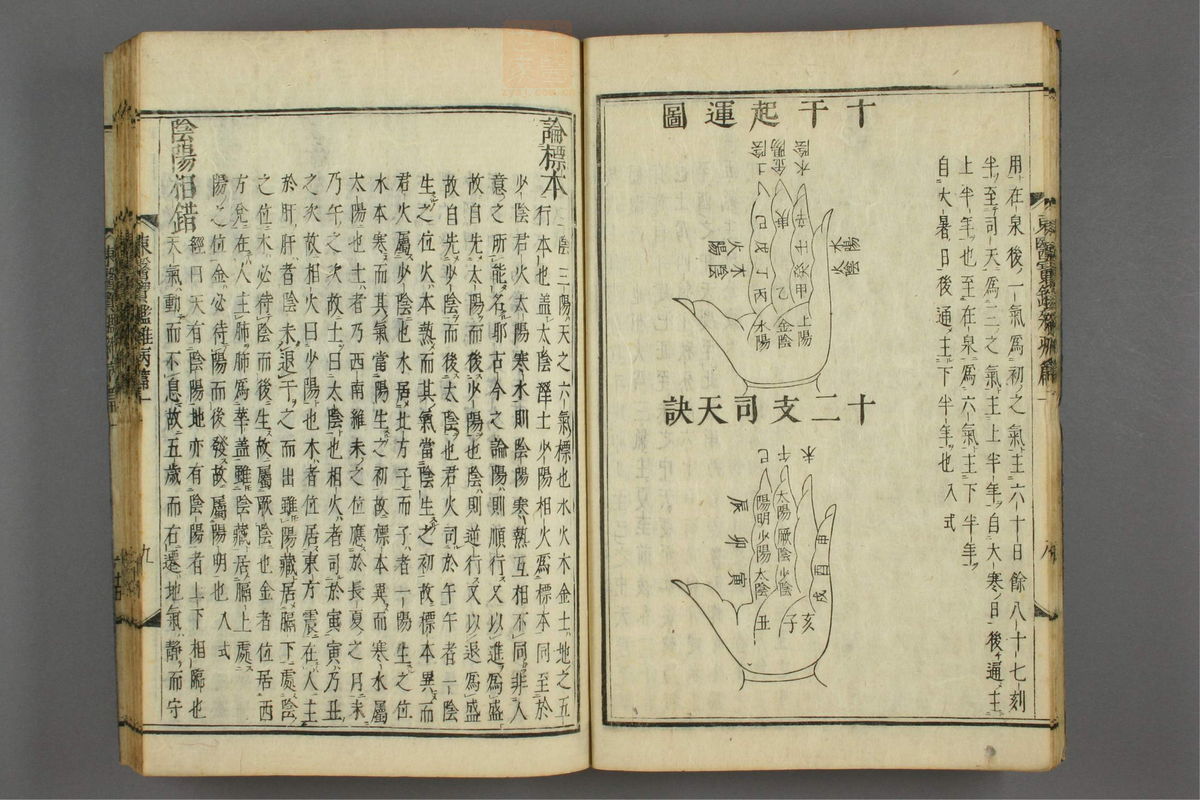 用在泉後一氣為初之氣主六十日餘八十七刻
半至司天為三之氣主上半年自大寒日後通主
上半年也至在泉為六氣主下半年
自大暑日後通主下半年也入式
十干起運圖
水陰
金陽
土陰
己
庚
辛
戊
壬
丁
癸
丙
乙
甲
火陽
木陰
木陽
火陰
水陽
金陰
土陽
十二支司天訣
巳
午
未
辰
卯
寅
丑
子
亥
戌
酉
申
太陽
厥陰
少陰
陽明
少陽
太陰
論標本
三陽天之六氣標也水火木金土地之五
行本也盖太陰濕土少陽相火為標本同至於
少陰君火太陽寒水則陰陽寒熱互相不同非入
意之所能名耶古今之論陽則順行又以進為盛
故自先太陽而後少陽也陰則逆行又以退為盛
故自先少陰而後太陰也君火司於午午者一陰
生之位火本熱而其氣當陰生之初故標本異而
君火屬少陰也水居北方子而子者一陽生之位
水本寒而其氣當陽生之初故標本異而寒水屬
太陽也土者乃西南維未之位應於長夏之月未
乃午之次故土曰太陰也相火者司於寅寅乃丑
之次故相火曰少陽也木者位居東方震在人主
於肝肝者陰未退干之而出雖陽藏居膈下處陰
之位木必待陰而後生故屬厥陰也金者位居西
方兌在人主肺肺為華盖雖陰藏居膈上處
陽之位金必待陽而後發故屬陽明也入式
陰陽相錯
經曰天有陰陽地亦有陰陽者上下相臨也
天氣動而不息故五歲而右遷地氣靜而守
東醫寶鑑雜病篇一
九